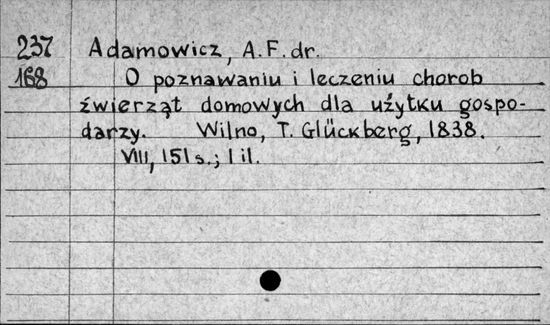 237 Adamowicz, A.F. dr.
168 O poznawaniu i leczeniu chorob
źwierząt domowych dla użytku gospo-
darzy. Wilno, T. Glücksberg, 1838.
VIII, 151 s.; 1 il.